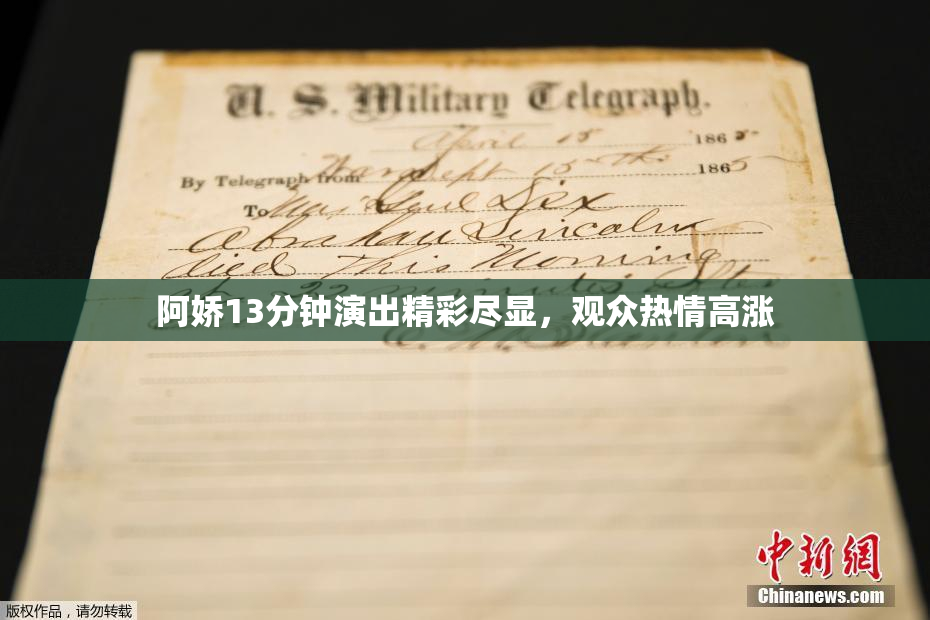 U. S. Military Telegraph.
April 15 1865
By Telegraph from War Dept 15th 1865
To Maj Genl Dix
Abraham Lincoln
died This Morning
22 minutes after
阿娇13分钟演出精彩尽显，观众热情高涨
E. M. Stanton
中新網
Chinanews.com
版权作品，请勿转载